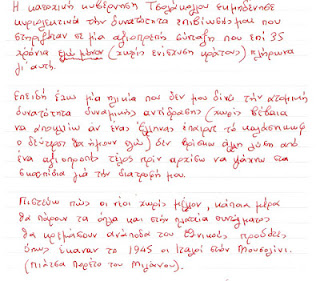 Η κατοχική κυβέρνηση Τσολάκογλου εκμηδένισε
κυριολεκτικά την δυνατότητα επιβίωσής μου που
στηριζόταν σε μια αξιοπρεπή σύνταξη που επί 35
χρόνια εγώ μόνον (χωρίς ενίσχυση κράτους) πλήρωνα
γι' αυτή.
Επειδή έχω μια ηλικία που δεν μου δίνει την ατομική
δυνατότητα δυναμικής αντίδρασης (χωρίς βέβαια
να αποκλείω αν ένας Έλληνας έπαιρνε το καλάσνικωφ
ο δεύτερος θα ήμουν εγώ) δεν βρίσκω άλλη λύση από
ένα αξιοπρεπές τέλος πριν αρχίσω να ψάχνω στα
σκουπίδια για την διατροφή μου.
Πιστεύω πως οι νέοι χωρίς μέλλον, κάποια μέρα
θα πάρουν τα όπλα και στην πλατεία Συντάγματος
θα κρεμάσουν ανάποδα τους εθνικούς προδότες
όπως έκαναν το 1945 οι Ιταλοί στον Μουσολίνι.
(Πιάτσα Λορέτο του Μιλάνου).